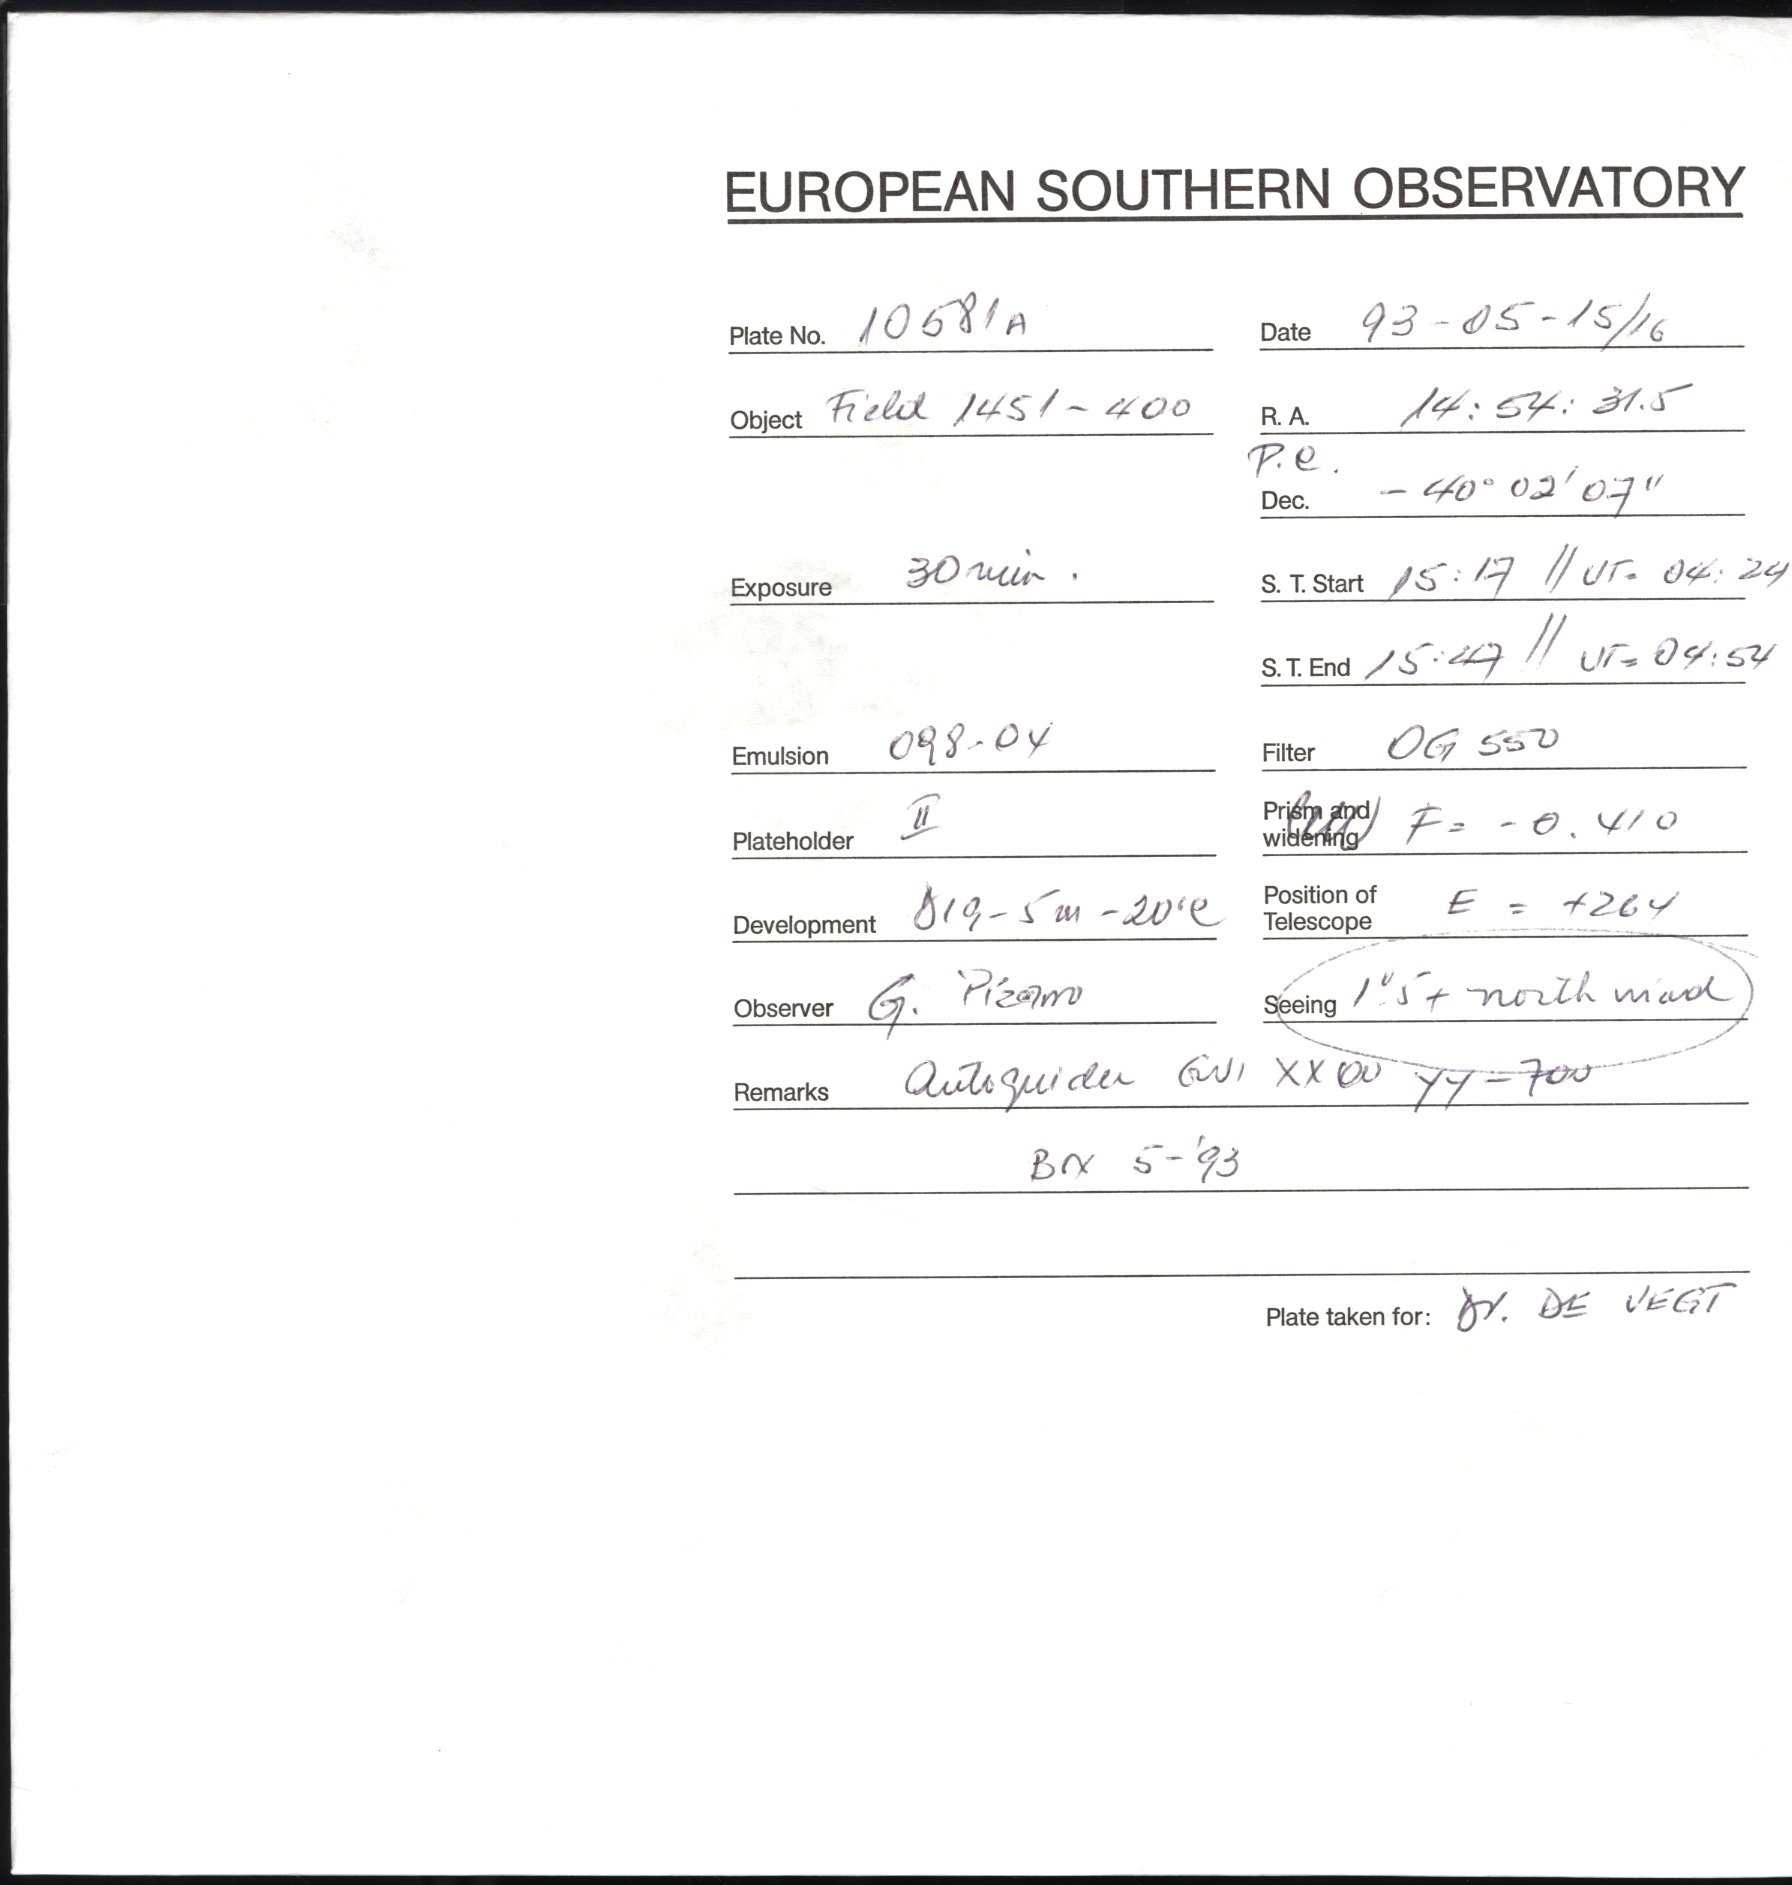 EUROPEAN SOUTHERN OBSERVATORY
Plate No. 10581A Date 93-05-15/16
Object Field 1451-400 R. A. 14: 54: 31.5
P.e.
Dec. -40° 02' 07"
Exposure 30 min. S. T. Start 15:17 // UT= 04:24
S. T. End 15:47 // UT= 04:54
Emulsion 098-04 Filter OG 550
Plateholder II Prism and widening F= -0.410
Development D19-5m-20°C Position of Telescope E = +264
Observer G. Pizarro Seeing 1".5+ north wind
Remarks Autoguider XX00 YY-700
5-'93
Plate taken for: Dr. DE VEGT